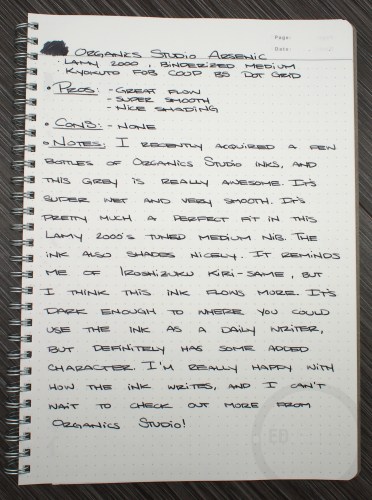 Page:
Date:
Organics Studio Arsenic
- Lamy 2000, Binderized Medium
- Kyokuto FOB COUP B5 Dot Grid
• Pros: - Great flow
- Super smooth
- Nice shading
• Cons: - None
• Notes: I recently acquired a few
bottles of Organics Studio inks, and
this grey is really awesome. It's
super wet and very smooth. It's
pretty much a perfect fit in this
Lamy 2000's tuned medium nib. The
ink also shades nicely. It reminds
me of Iroshizuku Kiri-same, but
I think this ink flows more. It's
dark enough to where you could
use the ink as a daily writer,
but definitely has some added
character. I'm really happy with
how the ink writes, and I can't
wait to check out more from
Organics Studio!